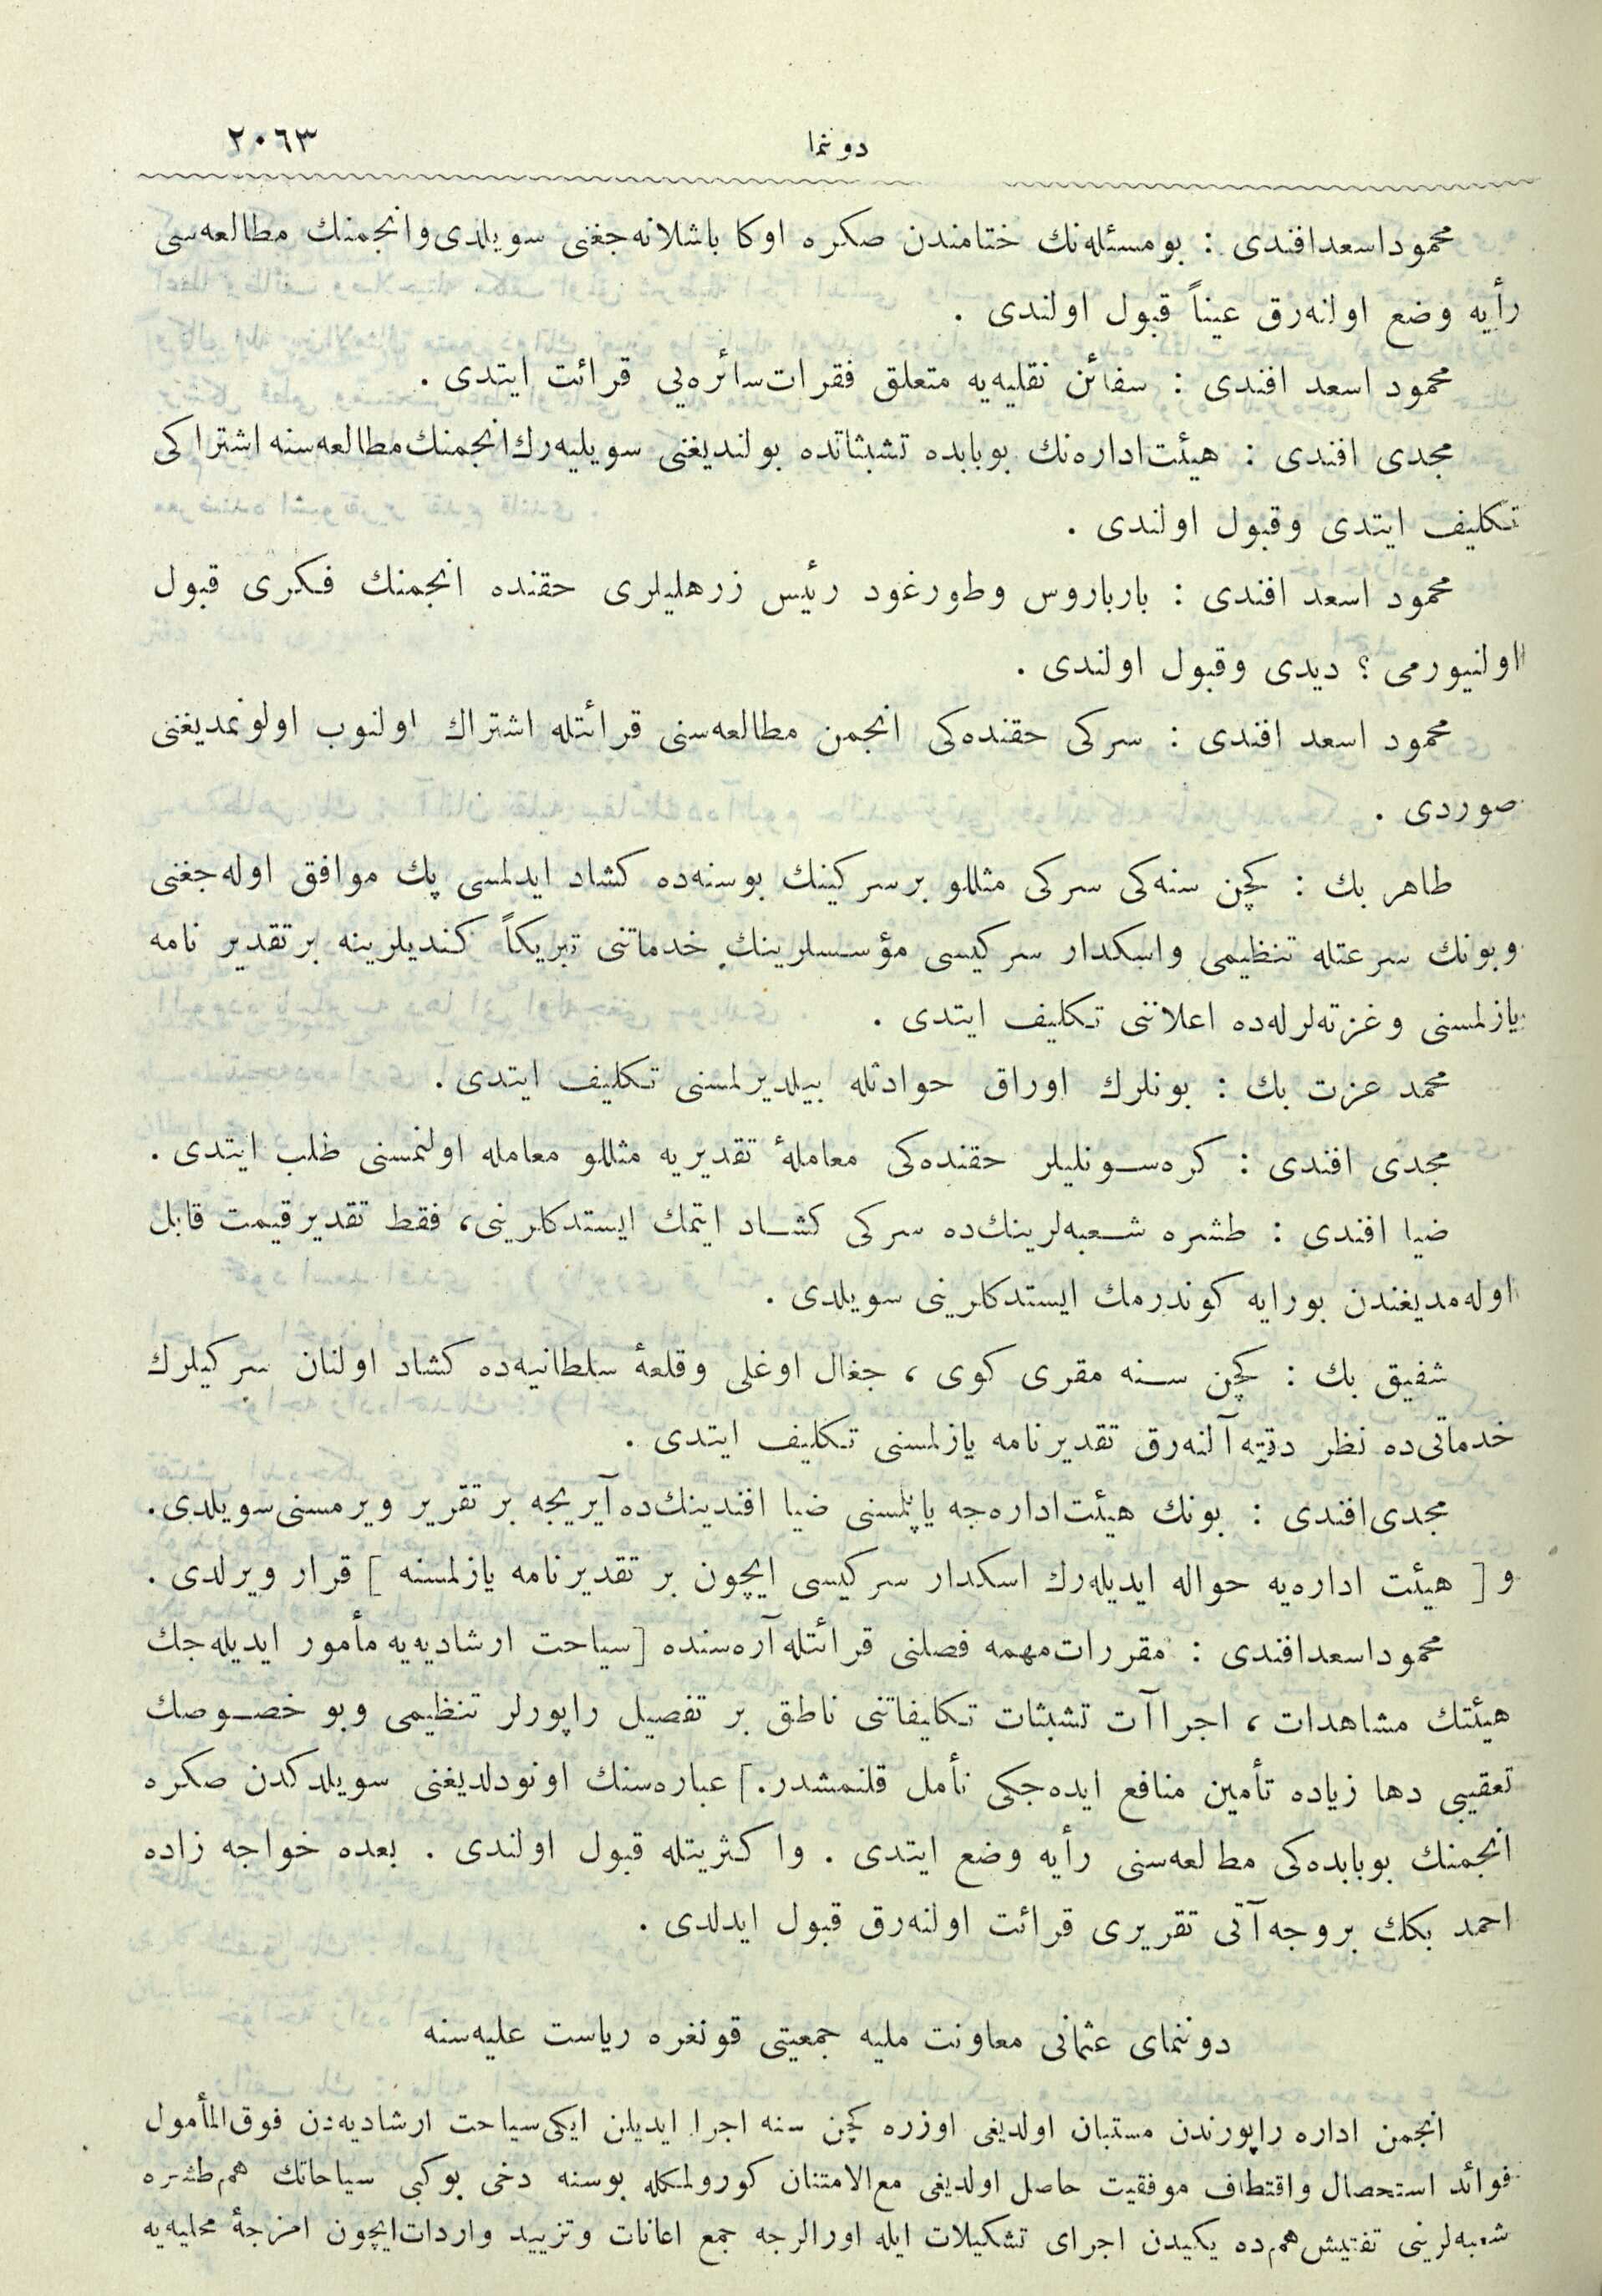 دوننما
٢٠٦٣
محموداسعدافندی : بومسئله‌نك ختامندن صكره اوكا باشلانه‌جغنی سویلدی‌وانجمنك مطالعه‌سی
رأیه وضع اولنه‌رق عیناً قبول اولندی .
محمود اسعد افندی : سفائن نقلیه‌یه متعلق فقرات‌سائره‌یی قرائت ایتدی .
مجدی افندی : هیئت‌اداره‌نك بوبابده تشبثاتده بولندیغنی سویلیه‌رك‌انجمنك‌مطالعه‌سنه اشتراكی
تكلیف ایتدی وقبول اولندی .
محمود اسعد افندی : بارباروس وطورغود رئیس زرهلیلری حقنده انجمنك فكری قبول
اولنیورمی ؟ دیدی وقبول اولندی .
محمود اسعد افندی : سركی حقنده‌كی انجمن مطالعه‌سنی قرائتله اشتراك اولنوب اولونمدیغنی
صوردی .
طاهر بك : كچن سنه‌كی سركی مثللو برسركینك بوسنه‌ده كشاد ایدلمسی پك موافق اوله‌جغنی
وبونك سرعتله تنظیمی واسكدار سركیسی مؤسسلرینك خدماتنی تبریكاً كندیلرینه برتقدیر نامه
یازلمسنی وغزته‌لرله‌ده اعلاننی تكلیف ایتدی .
محمد عزت بك : بونلرك اوراق حوادثله بیلدیرلمسنی تكلیف ایتدی .
مجدی افندی : كره‌سونلیلر حقنده‌كی معاملهٔ تقدیریه مثللو معامله اولنمسنی طلب ایتدی .
ضیا افندی : طشره شعبه‌لرینك‌ده سركی كشاد ایتمك ایستدكلرینی، فقط تقدیرقیمت قابل
اوله‌مدیغندن بورایه كوندرمك ایستدكلرینی سویلدی .
شفیق بك : كچن سنه مقری كوی ، جغال اوغلی وقلعهٔ سلطانیه‌ده كشاد اولنان سركیلرك
خدماتی‌ده نظر دقته‌آلنه‌رق تقدیرنامه یازلمسنی تكلیف ایتدی .
مجدی‌افندی : بونك هیئت‌اداره‌جه یاپلمسنی ضیا افندینك‌ده‌آیریجه بر تقریر ویرمسنی‌سویلدی.
و [ هیئت اداره‌یه حواله ایدیله‌رك اسكدار سركیسی ایچون بر تقدیرنامه یازلمسنه ] قرار ویرلدی .
محموداسعدافندی : مقررات‌مهمه فصلنی قرائتله‌آره‌سنده [سیاحت ارشادیه‌یه مأمور ایدیله‌جك
هیئتك مشاهدات ، اجراآت تشبثات تكلیفاتنی ناطق بر تفصیل راپورلر تنظیمی وبو خصوصك
تعقیبی دها زیاده تأمین منافع ایده‌جكی تأمل قلنمشدر.] عباره‌سنك اونودلدیغنی سویلدكدن صكره
انجمنك بوبابده‌كی مطالعه‌سنی رأیه وضع ایتدی . واكثریتله قبول اولندی . بعده خواجه زاده
احمد بكك بروجه‌آتی تقریری قرائت اولنه‌رق قبول ایدلدی .
دوننمای عثمانی معاونت ملیه جمعیتی قونغره ریاست علیه‌سنه
انجمن اداره راپورندن مستبان اولدیغی اوزره كچن سنه اجرا ایدیلن ایكی‌سیاحت ارشادیه‌دن فوق‌المأمول
فوائد استحصال واقتطاف موفقیت حاصل اولدیغی مع‌الامتنان كورولمكله بوسنه دخی بوكبی سیاحاتك هم‌طشره
شعبه‌لرینی تفتیش‌هم‌ده یكیدن اجرای تشكیلات ایله اورالرجه جمع اعانات وتزیید واردات‌ایچون امزجهٔ محلیه‌یه